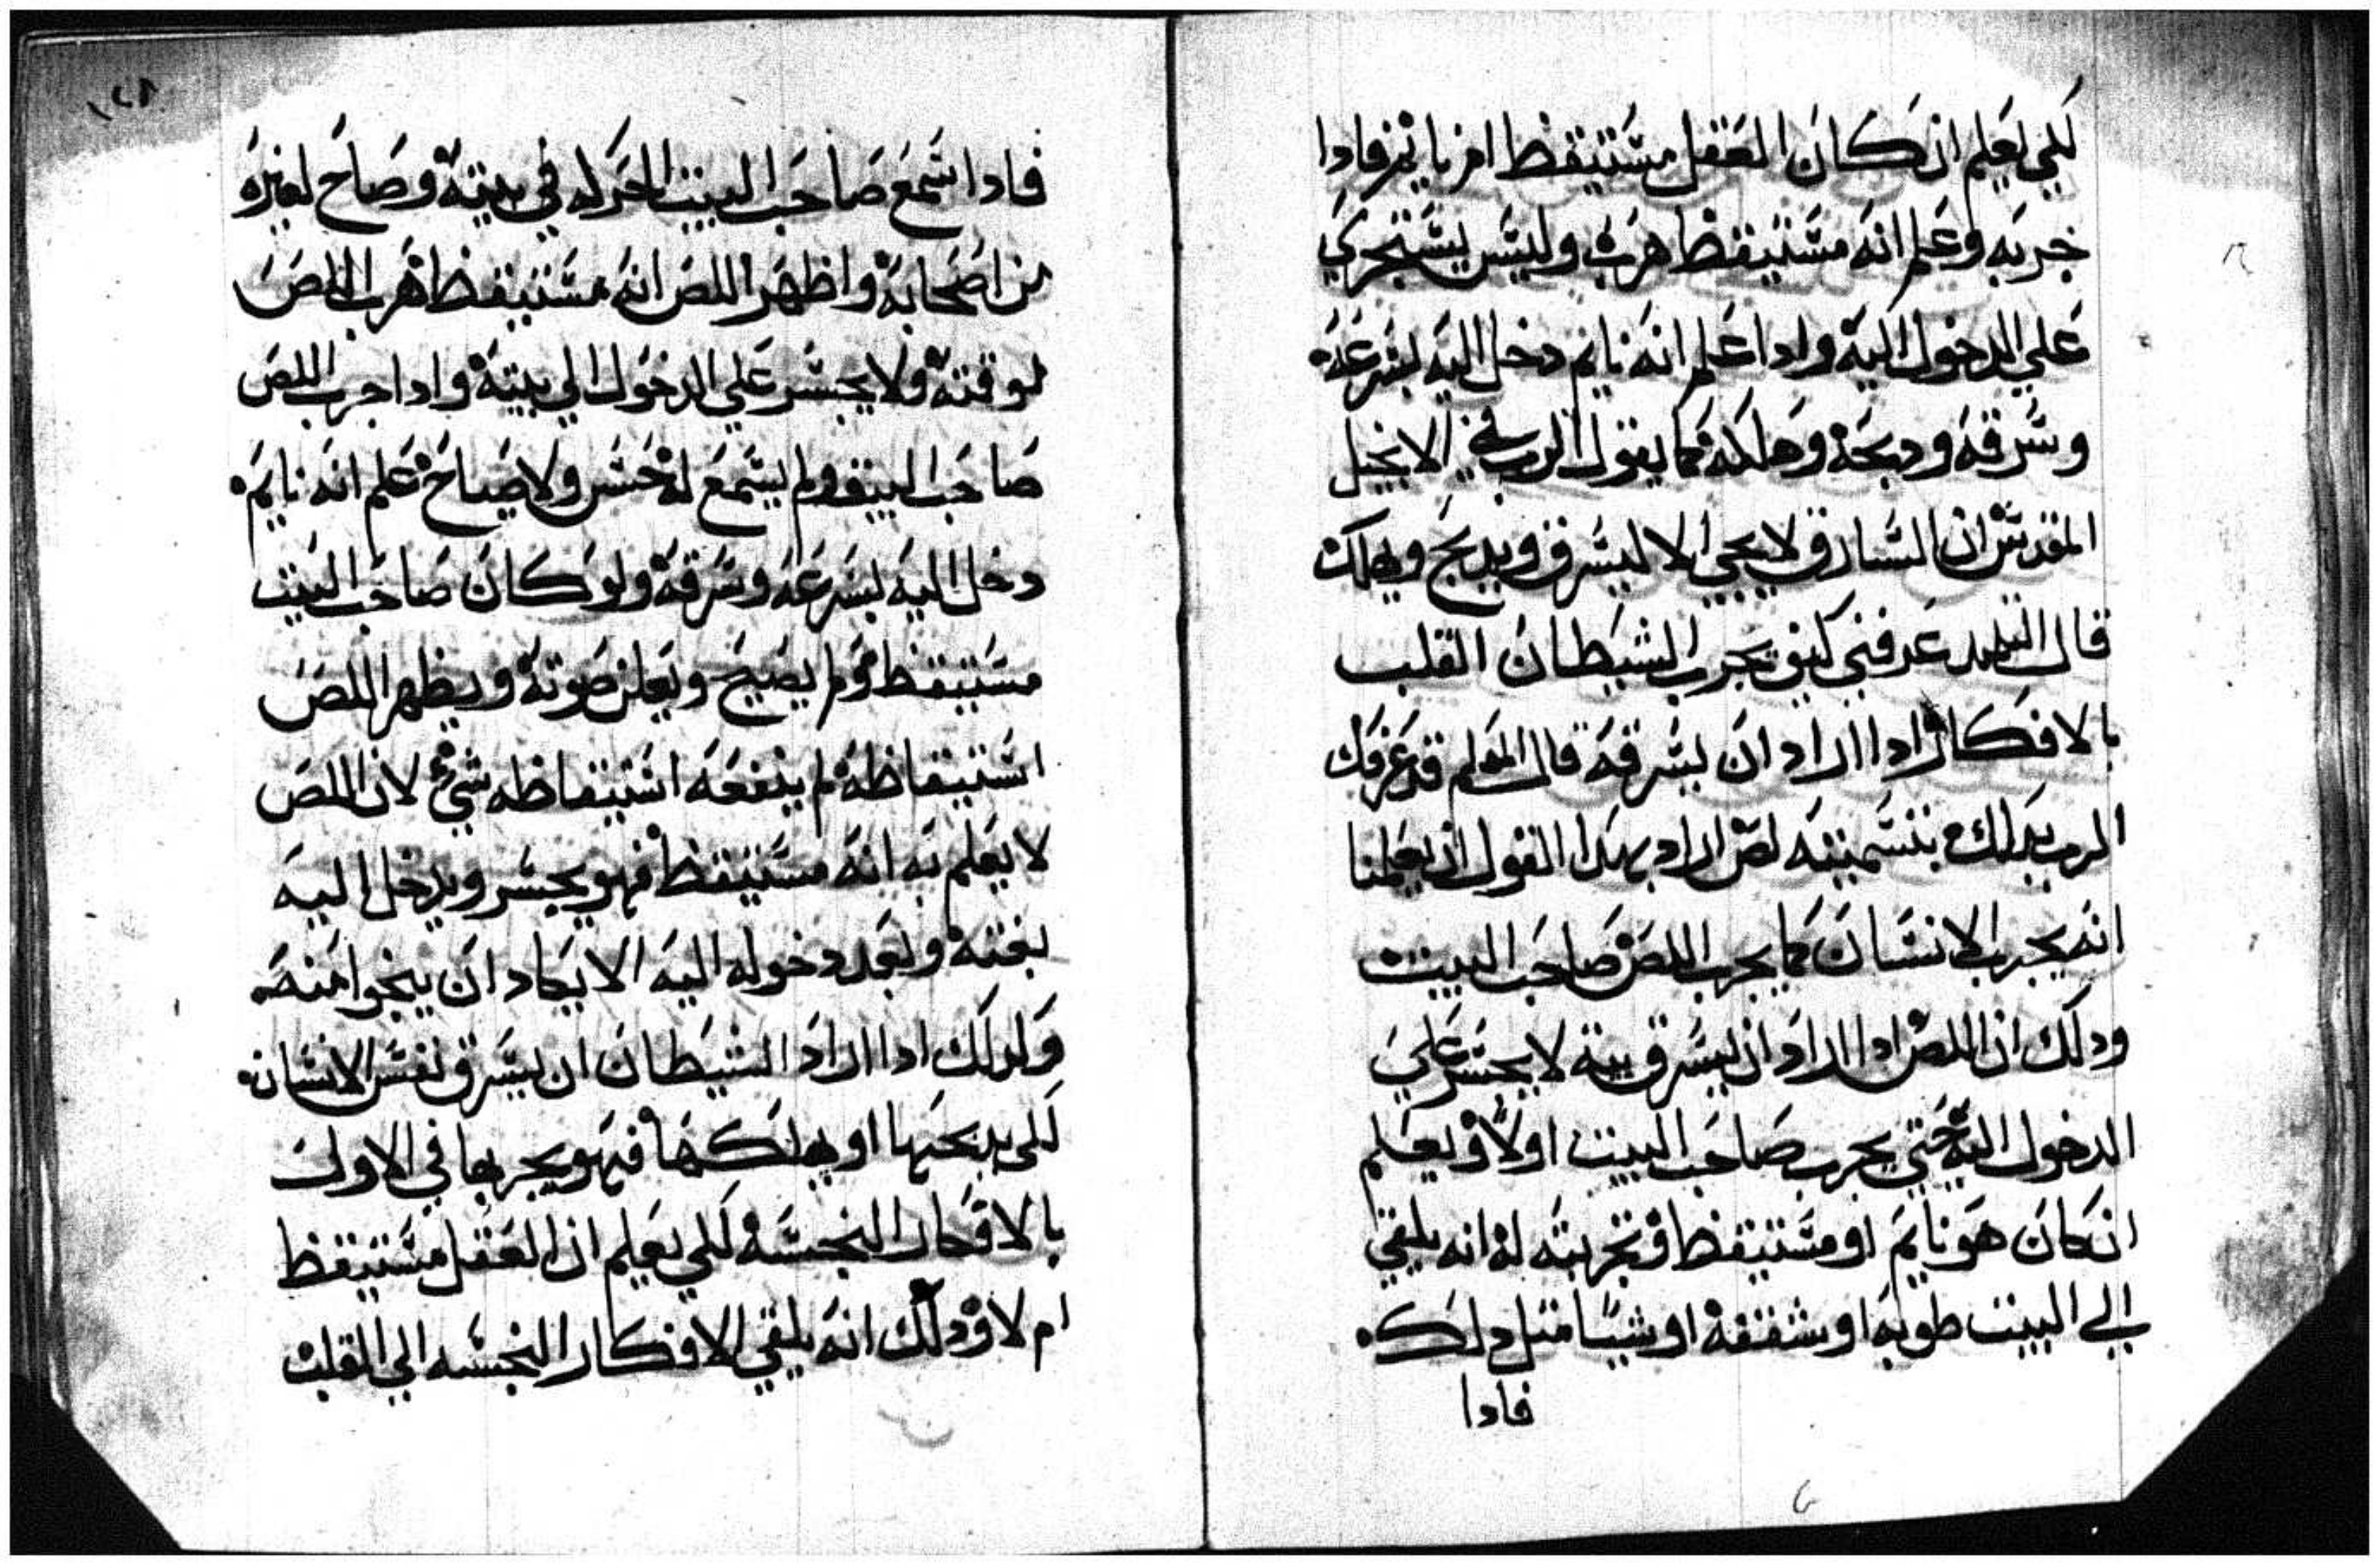 لكي يعلم ان كان العقل مستيقظ ام نايم فادا
جربه وعلم انه مستيقظ هرب وليس يستجري
علي الدخول اليه وادا علم انه نايم دخل اليه بسرعه
وسرقه ودبحه وهلكه كما يقول الرب في الانجيل
المقدس ان السارق لا يجي الا ليسرق ويدبح ويهلك
قال التلميد عرفني كيف يجرب الشيطان القلب
بالافكار ادا اراد ان يسرقه قال المعلم قد عرفك
الرب بدلك بتسميته لص اراد بهدا القول ان يعلمنا
انه يجرب الانسان كما يجرب اللص صاحب البيت
ودلك ان اللص ادا اراد ان يسرق بيته لا يجسر علي
الدخول اليه حتي يجرب صاحب البيت اولا ويعلم
ان كان هو نايم او مستيقظ وتجربته له انه يلقي
الي البيت طوبه او شقفه او شيا متل دلك
فادا
فادا سمع صاحب البيت الحركه في بيته وصاح لغيره
من اصحابه واظهر اللص انه مستيقظ هرب اللص
لوقته ولا يجسر علي الدخول الي بيته وادا جرب اللص
صاحب البيت ولم يسمع له حس ولا صياح علم انه نايم
دخل اليه بسرعه وسرقه ولو كان صاحب البيت
مستيقظ ولم يصيح ويعلن صوته ويظهر اللص
استيقاظه لم ينفعه استيقاظه شي لان اللص
لا يعلم به انه مستيقظ فهو يجسر ويدخل اليه
بغته وبعد دخوله اليه الا يكاد ان ينجوا منه
ولدلك ادا اراد الشيطان ان يسرق نفس الانسان
لكي يدبحها او يهلكها فهو يجربها في الاول
بالافكار النجسه لكي يعلم ان العقل مستيقظ
ام لا ودلك انه يلقي الافكار النجسه الي القلب